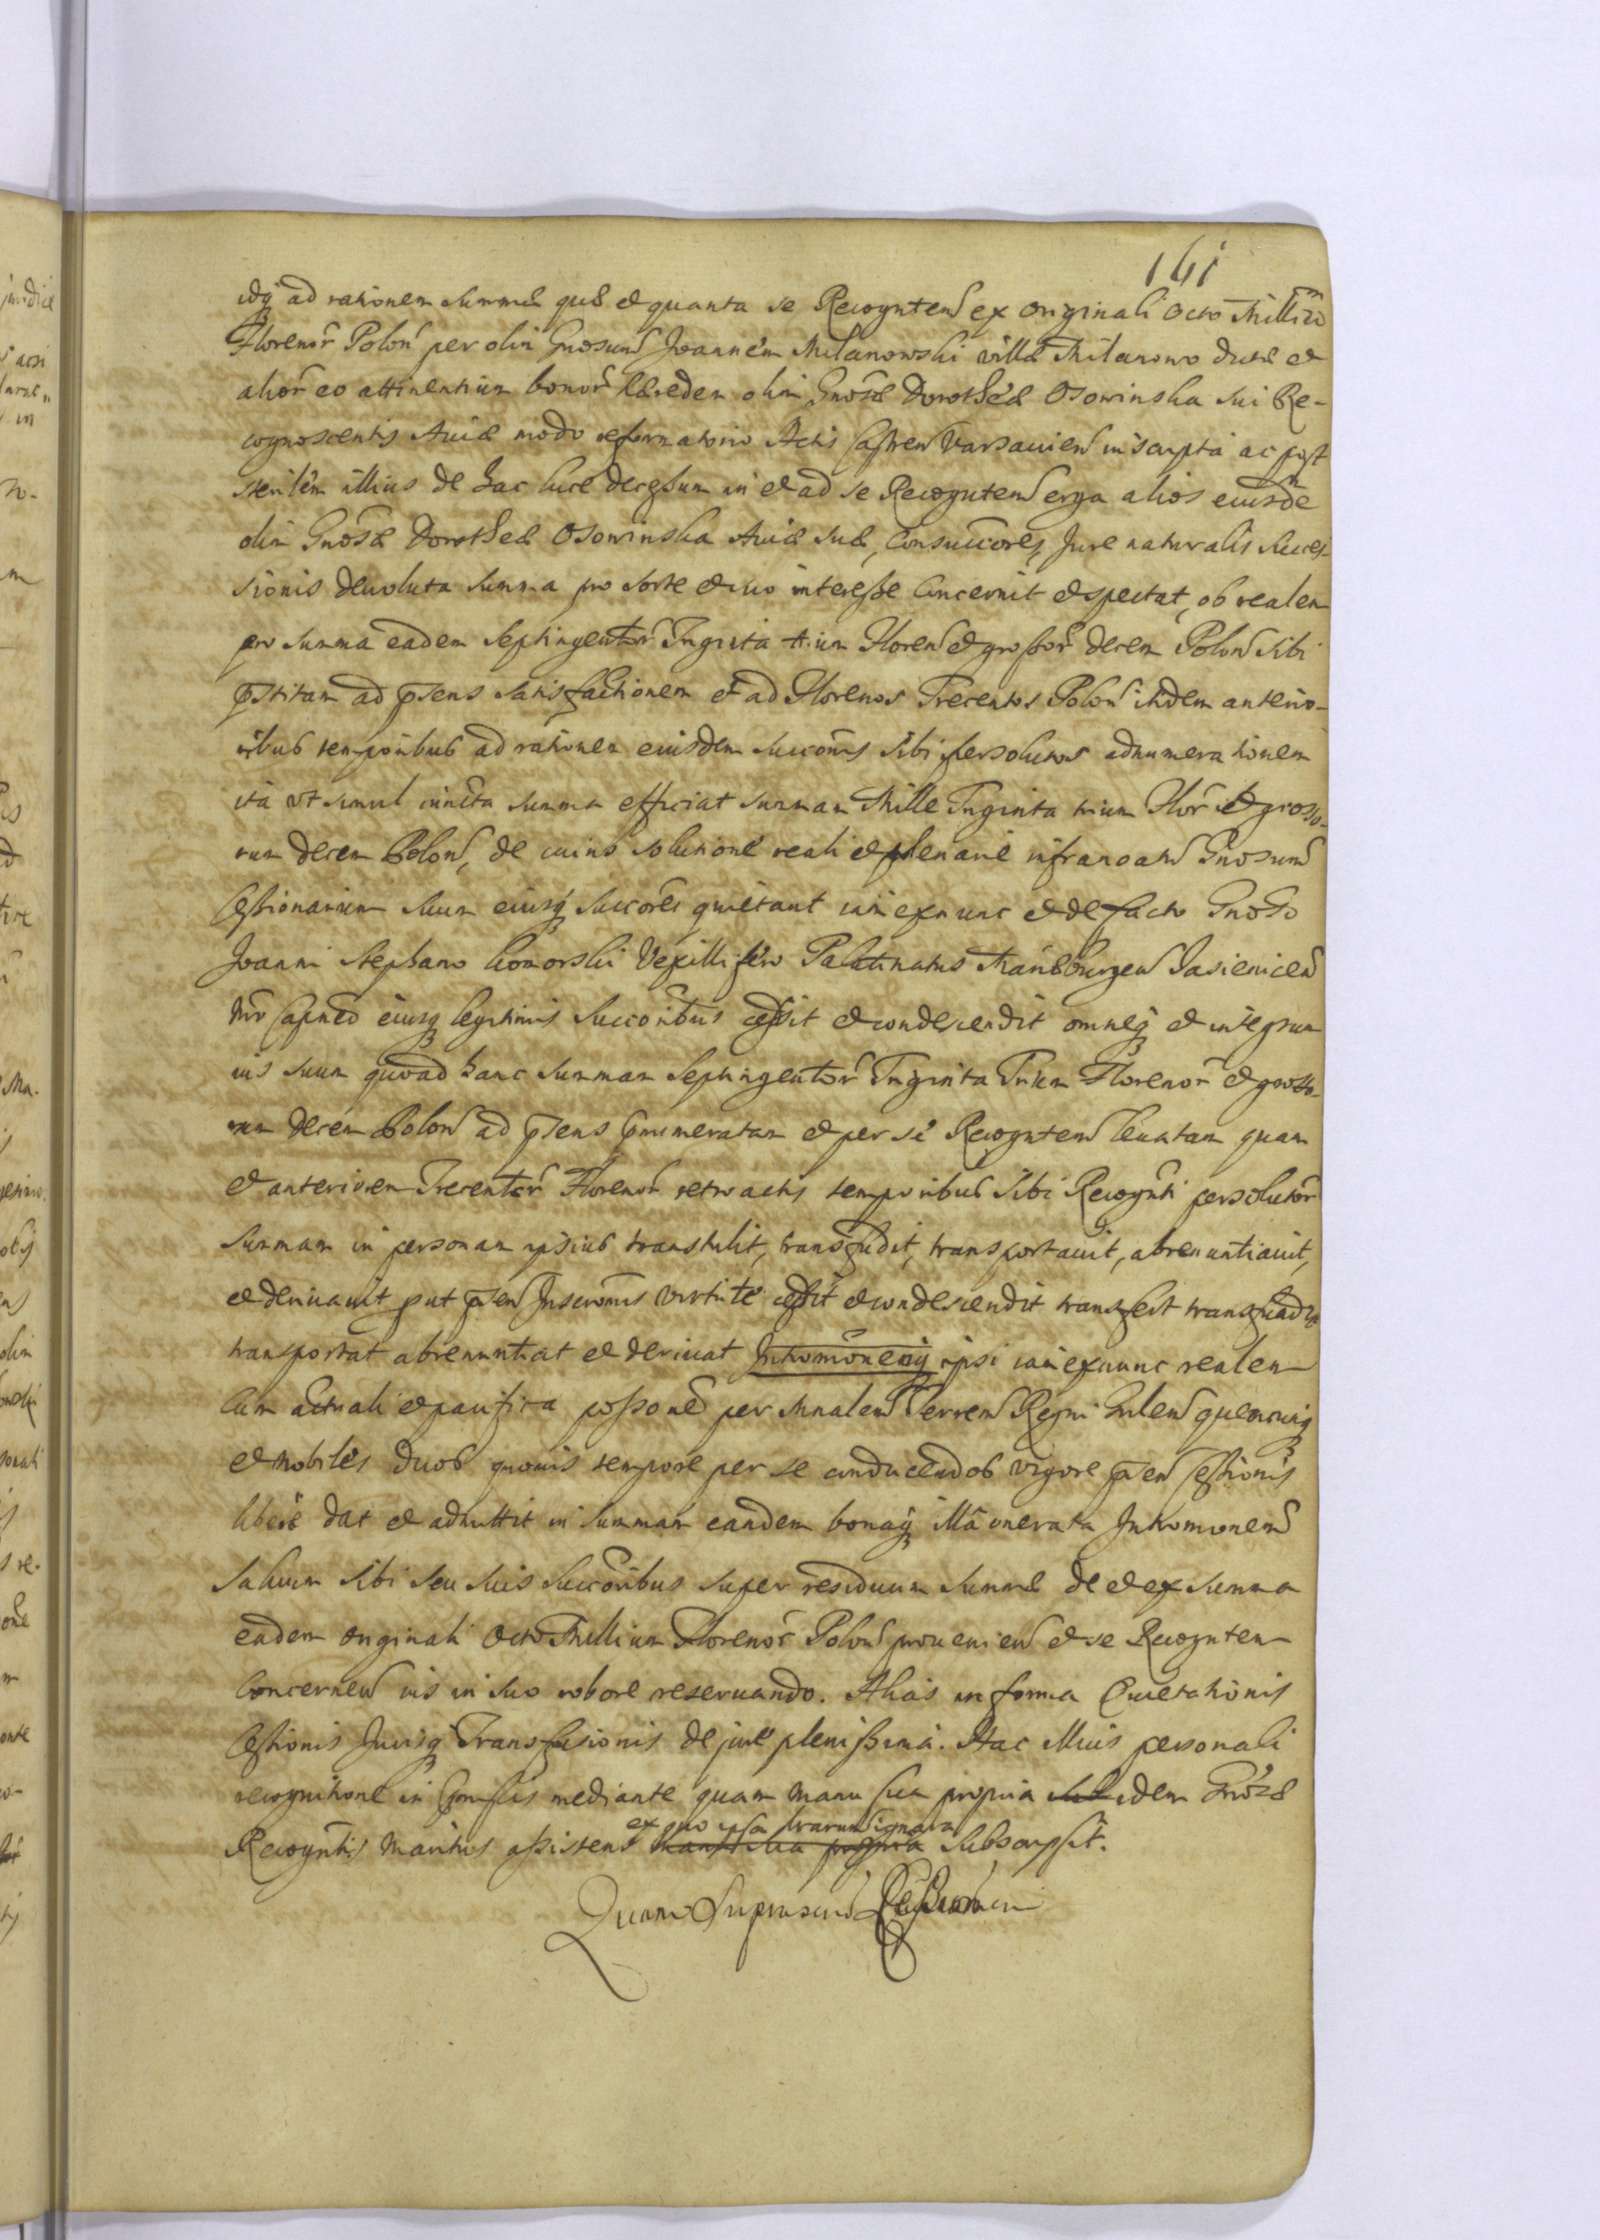 161
idq ad rationem summæ quæ et quanta se Recognten ex originali Octo Milliu
Florenor Polon per olim Gnosum Joannem Milanowski villæ Milanowo dictæ et
alior eo attinentium bonor hæredem olim Gnosæ Dorotheæ Osowinska sui Re-
cognoscentis Auiæ modo reformatorio Actis Castren Varsauien inscripta ac post
sterilem illius de hac luce decessum in et ad se Recognten erga alios eiusdem
olim Gnosæ Dorotheæ Osowinska Auiæ suæ, Consuccores, Jure naturalis succes-
sionis deuoluta summa pro sorte et suo interesse Concernit et spectat, ob realem
pro summa eadem Septingentor Triginta trium Floren et grossor decem Polon sibi
pstitam ad psens satisfactionem et ad Florenos Trecentos Polon itidem anterio-
ribus temporibus ad rationem eiusdem succonis sibi persolutos adnumerationem
ita vt simul iuncta summa efficiat summam Mille Triginta trium Flor et grosso-
rum decem Polon, de cuius solutione reali et plenarie infranoatum Gnosum
Cessionarium suum eiusq succores quietant iam exnunc et de facto Gnoso
Joanni Stephano Komorski Vexillifero Palatinatus Mariæburgen Jasienicen
Mro Capneo eiusq legitimis Succoribus cessit et condescendit omneq et integrum
ius suum quoad hanc summam Septingentor Triginta Trium Florenor et grosso-
rum decem Polon ad psens pnumeratam et per se Recognten leuatam quam
et anteriorem Trecentor Florenor retroactis temporibus sibi Recognti persolutor
summam in personam ipsius transtulit, transfudit, transportauit, abrenuntiauit,
et deriuauit put psen Inscronis virtute cessit et condescendit transfert transfundit
transportat abrenuntiat et deriuat Intromoneq ipsi iam exnunc realem
Cum actuali et pacifica possone per Mnalem Terren Regni Gnlen quemcunq
et Nobiles duos quouis tempore per se conducendos vigore psen Cessionis
libere dat et admittit in summam eandem bonaq illa onerata Intromonem
saluum sibi seu suis succoribus super residuum summæ de et ex summa
eadem originali Octo Millium Florenor Polon prouenien et se Recognten
Concernen ius in suo robore reseruando. Alias in forma Quietationis
Cessionis Jurisq Transfusionis de jure plenissima. Hac illius personali
recognitione in Compleis mediante quam manu sua propria idem Gnosæ
Recogntis Maritus assistens ex quo ipsa lrarum ignara subscripsit.
Quam Suprascri Cessionem